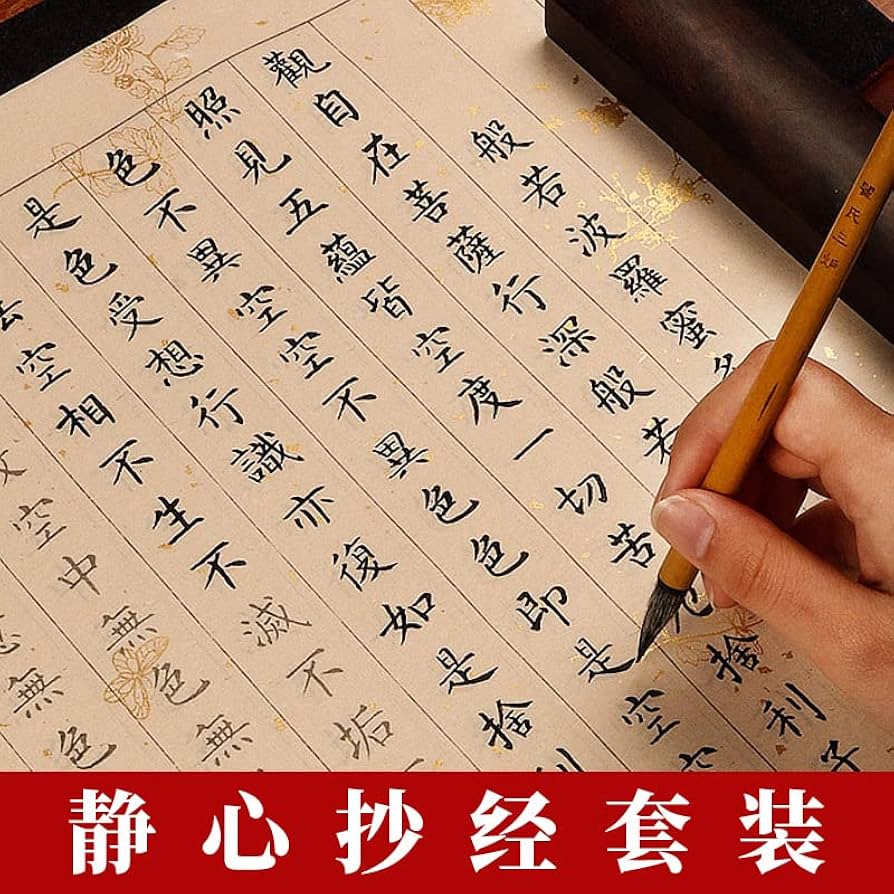 般若波羅蜜
觀自在菩薩行深般若
照見五蘊皆空度一切苦厄捨利子
色不異空空不異色色即是空空
是色受想行識亦復如是捨利
法空相不生不滅不垢
空中無色無
無色
静心抄经套装